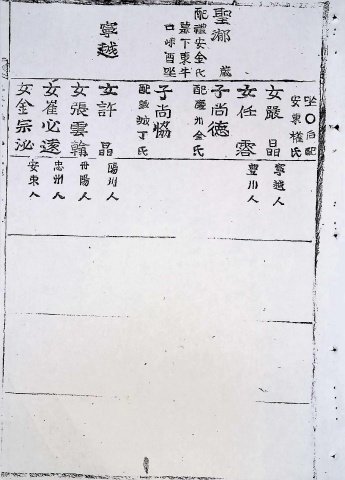 聖
配禮安金氏
墓下東牛
口味酉坐
寧越
坐〇后配
安東權氏
女嚴晶
寧越人
女任
豊川人
子尚德
配慶州金氏
子尚恊
配 城丁氏
女許晶
陽川人
女張雲翰
丹陽人
女崔必遂
忠州人
女金宗泌
安東人